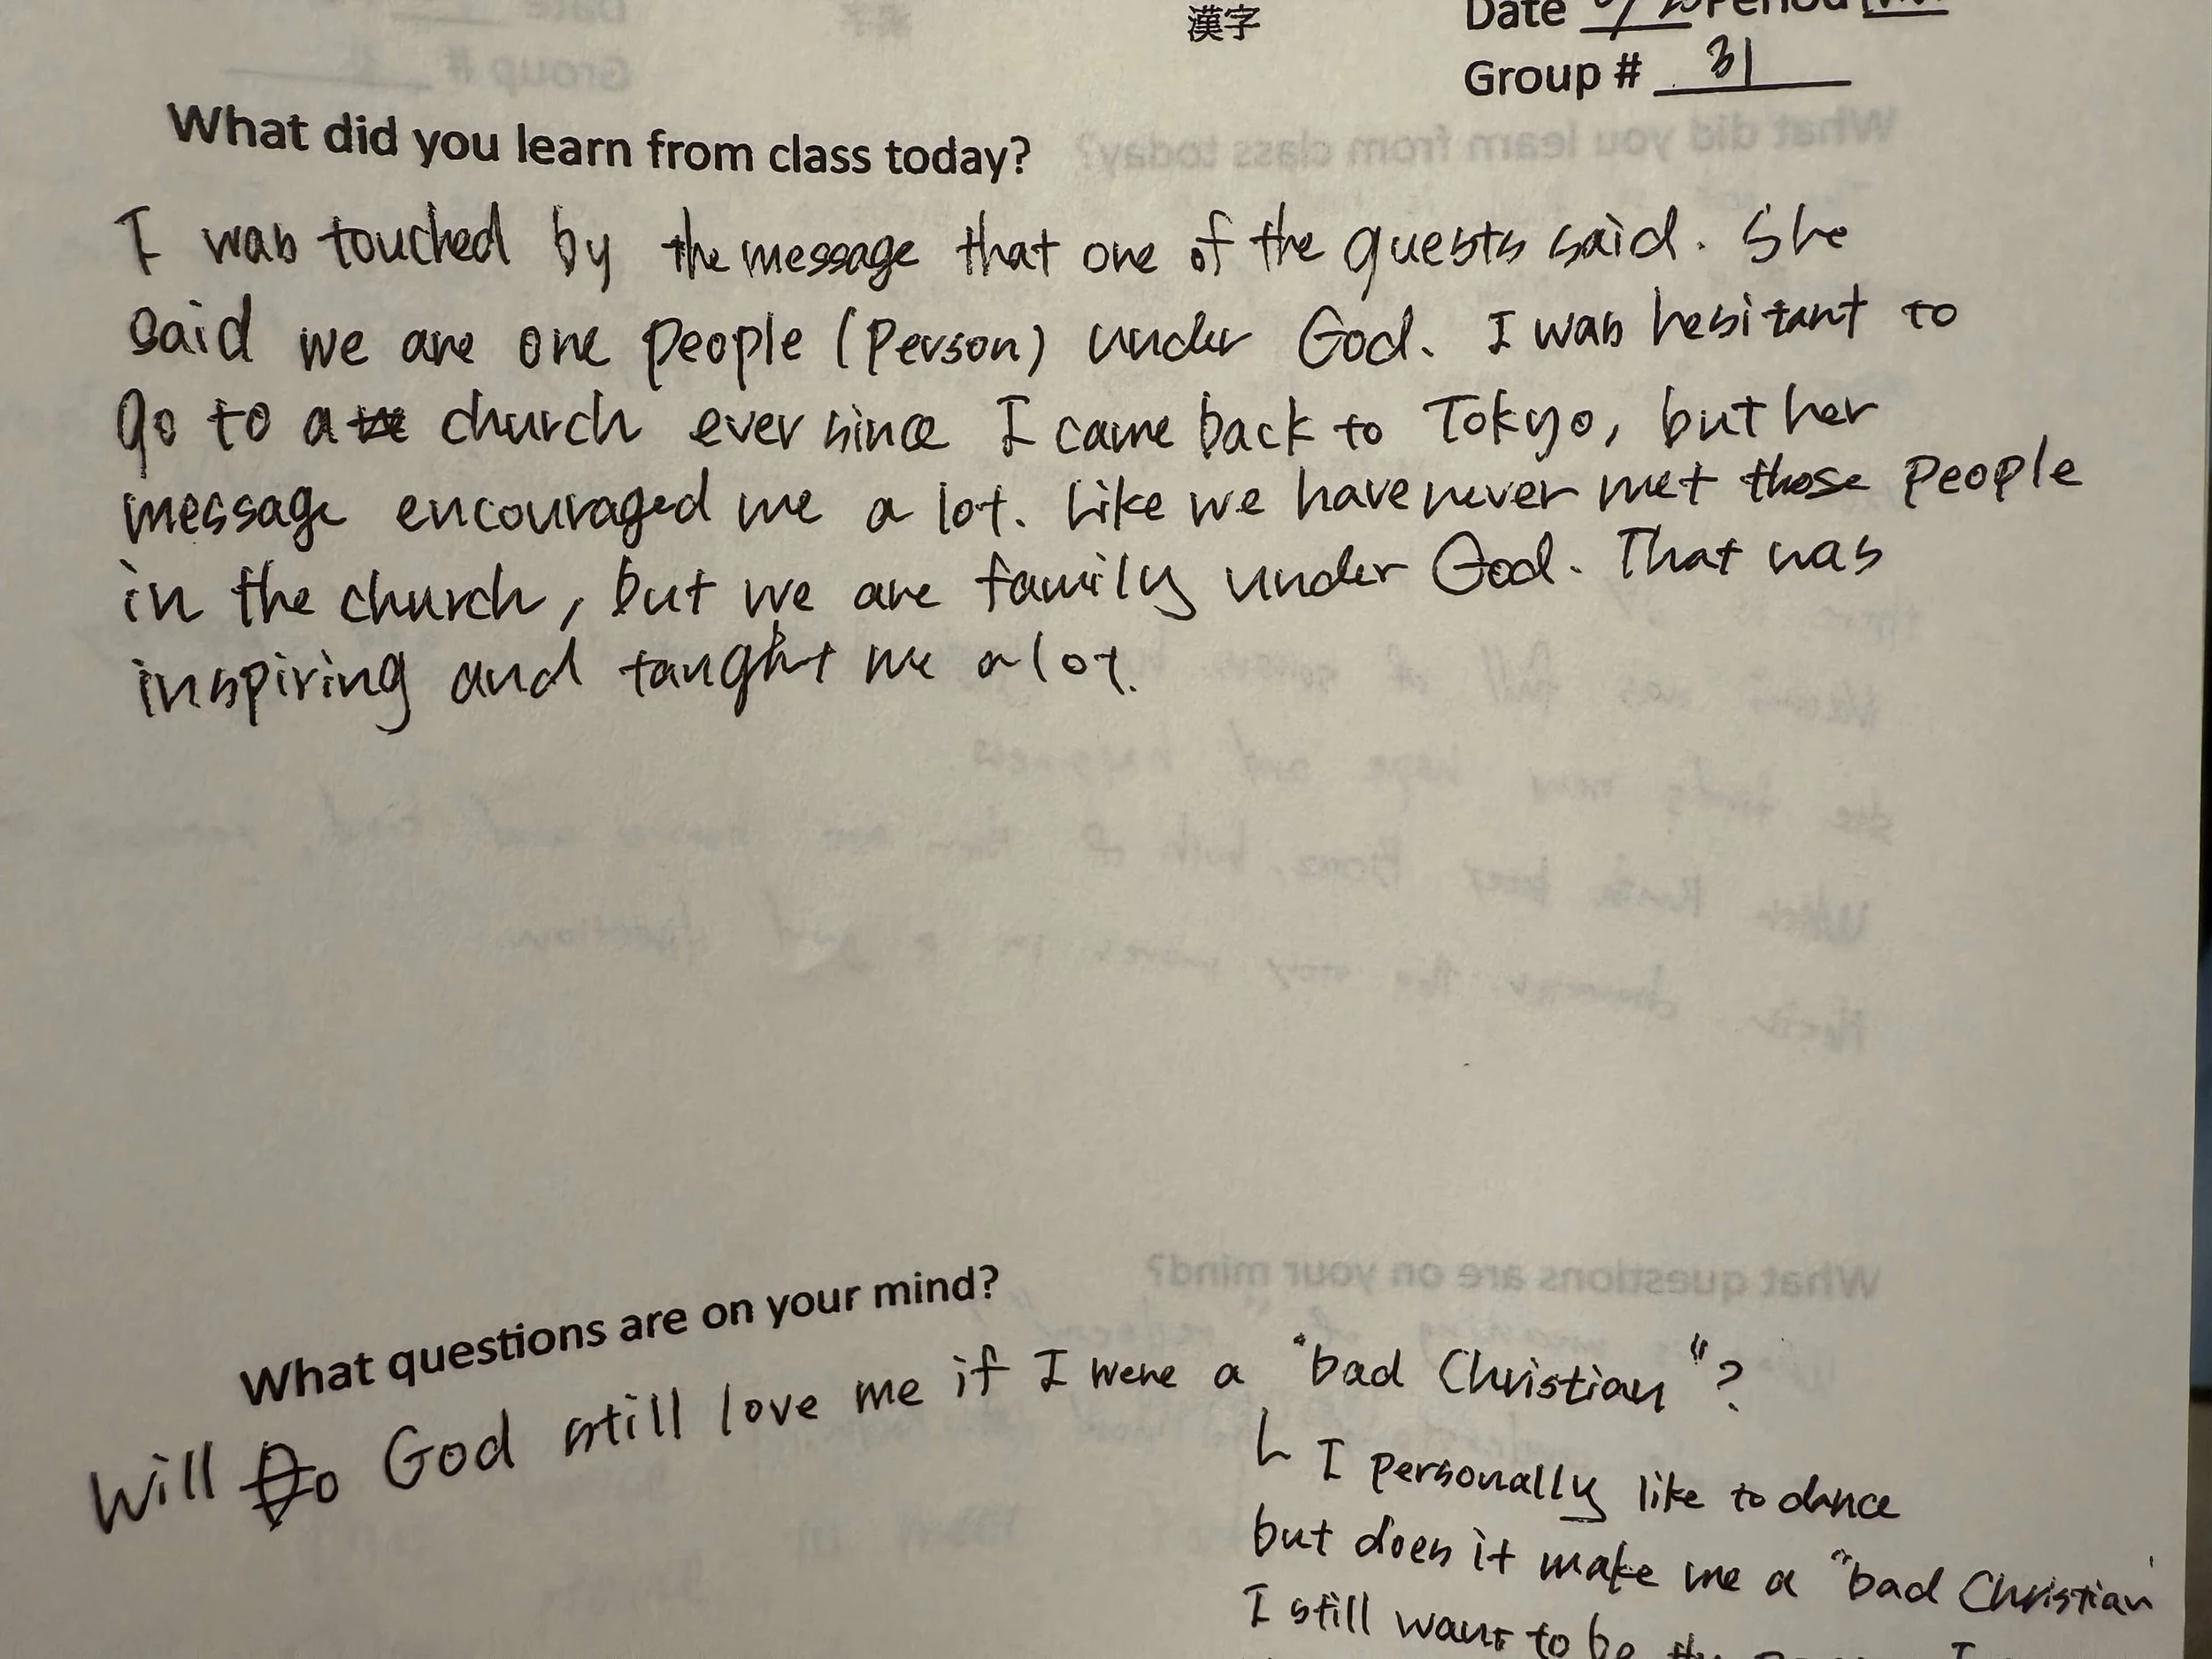 漢字
Date Period
Group # 31
What did you learn from class today?
I was touched by the message that one of the guests said. She
said we are one people (Person) under God. I was hesitant to
go to a church ever since I came back to Tokyo, but her
message encouraged me a lot. Like we have never met those people
in the church, but we are family under God. That was
inspiring and taught me a lot.
What questions are on your mind?
Will God still love me if I were a "bad Christian"?
I personally like to dance
but does it make me a "bad Christian
I still want to be the